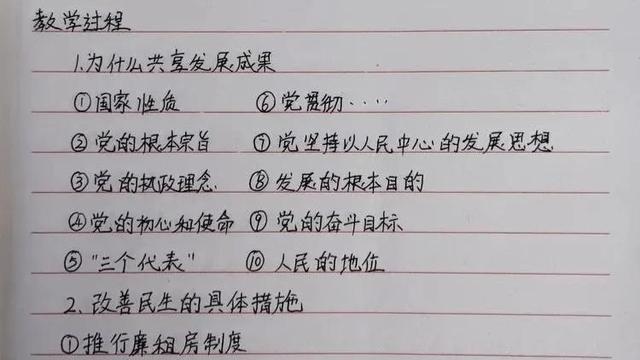 教学过程
1.为什么共享发展成果
①国家性质 ⑥党贯彻····
②党的根本宗旨 ⑦党坚持以人民中心的发展思想
③党的执政理念 ⑧发展的根本目的
④党的初心和使命 ⑨党的奋斗目标
⑤"三个代表" ⑩人民的地位
2.改善民生的具体措施
①推行廉租房制度